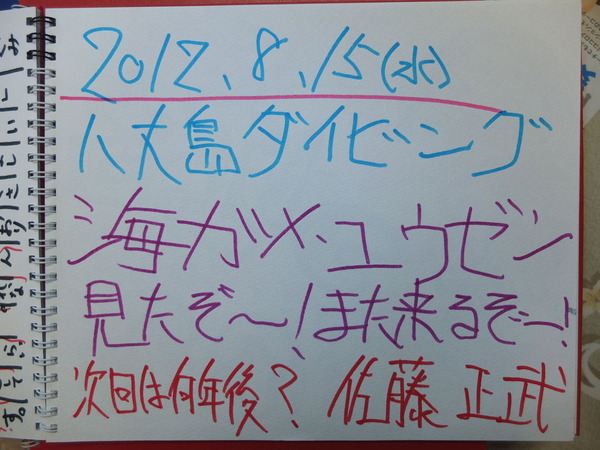 2012.8.15(水)
八丈島ダイビング
海ガメ・ユウゼン
見たぞ〜!また来るぞー!
次回は何年後? 佐藤 正武